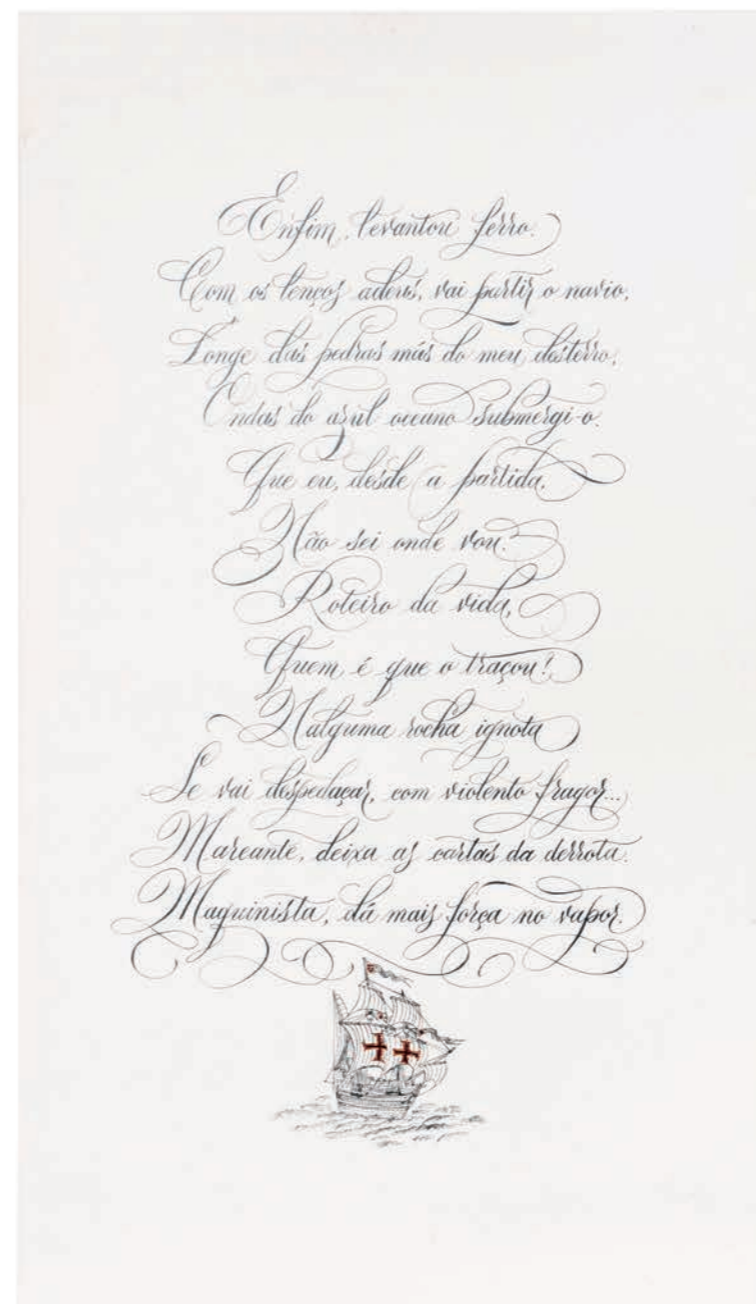 Enfim, levantou ferro.
Com os lenços adeus, vai partir o navio.
Longe das pedras más do meu desterro,
Ondas do azul oceano submergi-o.
Que eu, desde a partida,
Não sei onde vou.
Roteiro da vida,
Quem é que o traçou?
Nalguma rocha ignota
Se vai despedaçar, com violento fragor...
Mareante, deixa as cartas da derrota.
Maquinista, dá mais força no vapor.